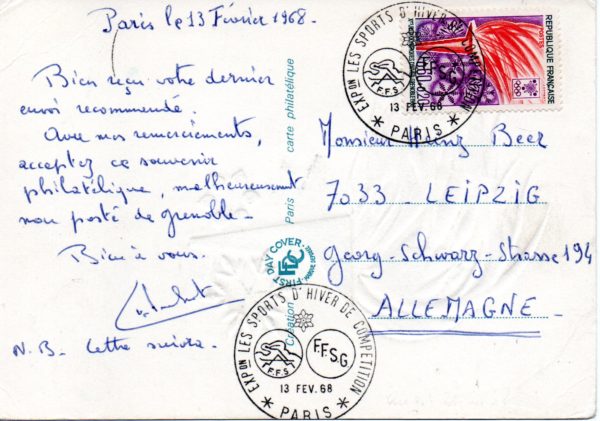 Paris le 13 Février 1968.
Bien reçu votre dernier
envoi recommandé.
Avec mes remerciements,
acceptez ce souvenir
philatélique, malheureusement
non posté de Grenoble.
Bien à vous.
N.B. Lettre suivra.
carte philatélique
Paris
Création
FIRST DAY COVER
FDC
EXPON LES SPORTS D'HIVER DE COMPETITION
F.F.S
F.F.S G
13 FEV. 68
* PARIS *
REPUBLIQUE FRANÇAISE
POSTES
Monsieur Heinz Beer
7033 - LEIPZIG
Georg-Schwarz-Strasse 194
ALLEMAGNE
EXPON LES SPORTS D'HIVER DE COMPETITION
F.F.S
F.F.S G
13 FEV. 68
* PARIS *